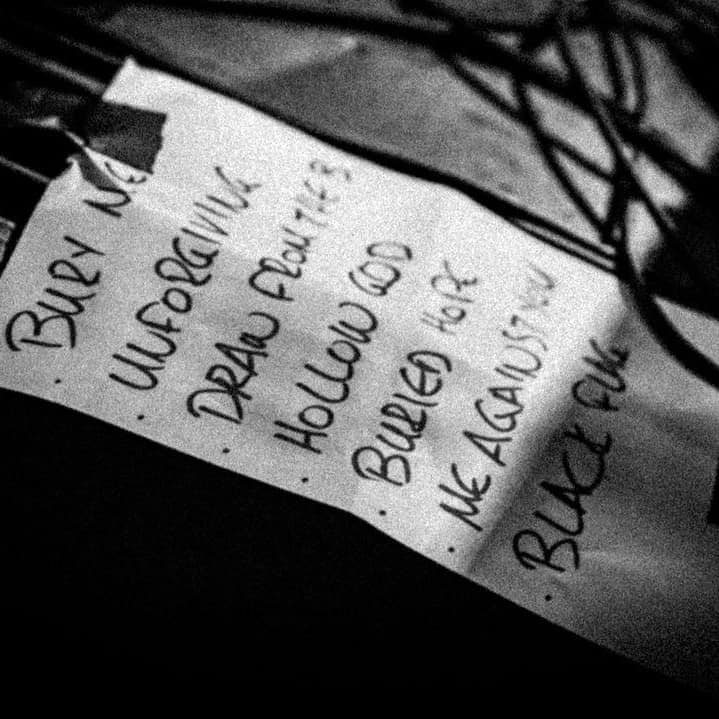 · BURY ME
· UNFORGIVING
· DRAW FROM THE
· HOLLOW GOD
· BURIED HOPE
· ME AGAINST YOU
· BLACK